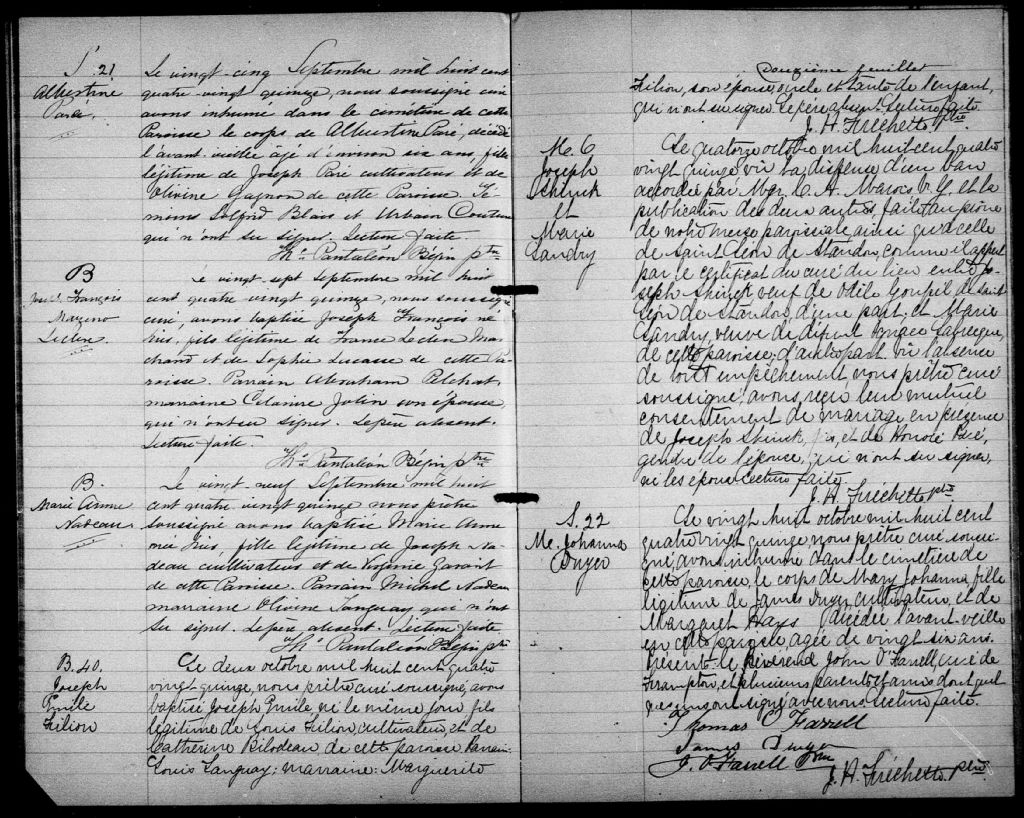 S. 21
Albertine
Paré
Le vingt-cinq Septembre mil huit cent
quatre-vingt quinze, nous soussigné curé
avons inhumé dans le cimétière de cette
Paroisse le corps de Albertine Paré, décédé
l'avant-veille âgé d'environ six ans, fille
légitime de Joseph Paré cultivateur et de
Olivine Gagnon de cette Paroisse. Té-
moins Blais et Urbain Couture
qui n'ont su signer. Lecture faite.
Ths. Pantaléon Bégin ptre
B
François
Lecler
Le vingt-sept Septembre mil huit
cent quatre vingt quinze, nous soussigné
curé, avons baptisé Joseph François né
hier, fils légitime de France Lecler Mar-
chand et de Sophie Lucasse de cette Pa-
roisse. Parrain Abraham Pelchat,
marraine Jolin son épouse,
qui n'ont su signer. Le père absent.
Lecture faite.
Ths. Pantaléon Bégin ptre
B.
Marie Anne
Nadeau
Le vingt-neuf Septembre mil huit
cent quatre vingt quinze nous prêtre
soussigné avons baptisé Marie Anne
née hier, fille légitime de Joseph Na-
deau cultivateur et de Virginie
de cette Paroisse. Parrain Michel Nadeau
marraine Olivine Tanguay qui n'ont
su signer. Le père absent. Lecture faite
Ths. Pantaléon Bégin ptre
B. 40.
Joseph
Emile
Filion
Le deux octobre mil huit cent quatre
vingt-quinze, nous prêtre curé soussigné, avons
baptisé Joseph Emile, né le même jour fils
légitime de Louis Filion, cultivateur, et de
Catherine Bilodeau de cette paroisse Parrain:
Louis Tanguay; marraine: Marguerite
Douzième feuillet
Filion, son épouse, oncle et tante de l'enfant,
qui n'ont su signer. Le père absent. Lecture faite
J. H. Fréchette Ptre
M. 6
Joseph
Shinck
et
Marie
Landry
Le quatorze octobre mil huit cent quatre
vingt quinze, vu la dispense d'un ban
accordée par Mgr. C. A. Marois V. G. et la
publication des deux autres, faite au prône
de notre messe paroissiale ainsi qu'à celle
de Saint Léon de Standon, comme il appert
par le certificat du curé du lieu entre Jo-
seph Shinck veuf de Odile Goupil de Saint
Léon de Standon, d'une part; et Marie
Landry, veuve de défunt Ignace Labrecque,
de cette paroisse, d'autre part, vu l'absence
de tout empêchement, nous prêtre curé
soussigné, avons reçu leur mutuel
consentement de mariage en présence
de Joseph Shinck, fils, et de Honoré Paré,
gendre de l'épouse, qui n'ont su signer,
ni les époux. Lecture faite.
J. H. Fréchette ptre
S. 22
Me. Johanna
Dwyer
Le vingt huit octobre mil huit cent
quatre vingt quinze, nous prêtre curé soussi-
gné, avons inhumé dans le cimetière de
cette paroisse, le corps de Mary Johanna, fille
légitime de James Dwyer, cultivateur, et de
Margaret Hays décédée l'avant-veille
en cette paroisse, agée de vingt-six ans.
Présents le Révérend John O'Farrell, curé de
Frampton, et plusieurs parents et amis dont quel-
ques uns ont signé avec nous. Lecture faite.
Thomas Farrell
James Dwyer
J. O'Farrell Ptre
J. H. Fréchette Ptre